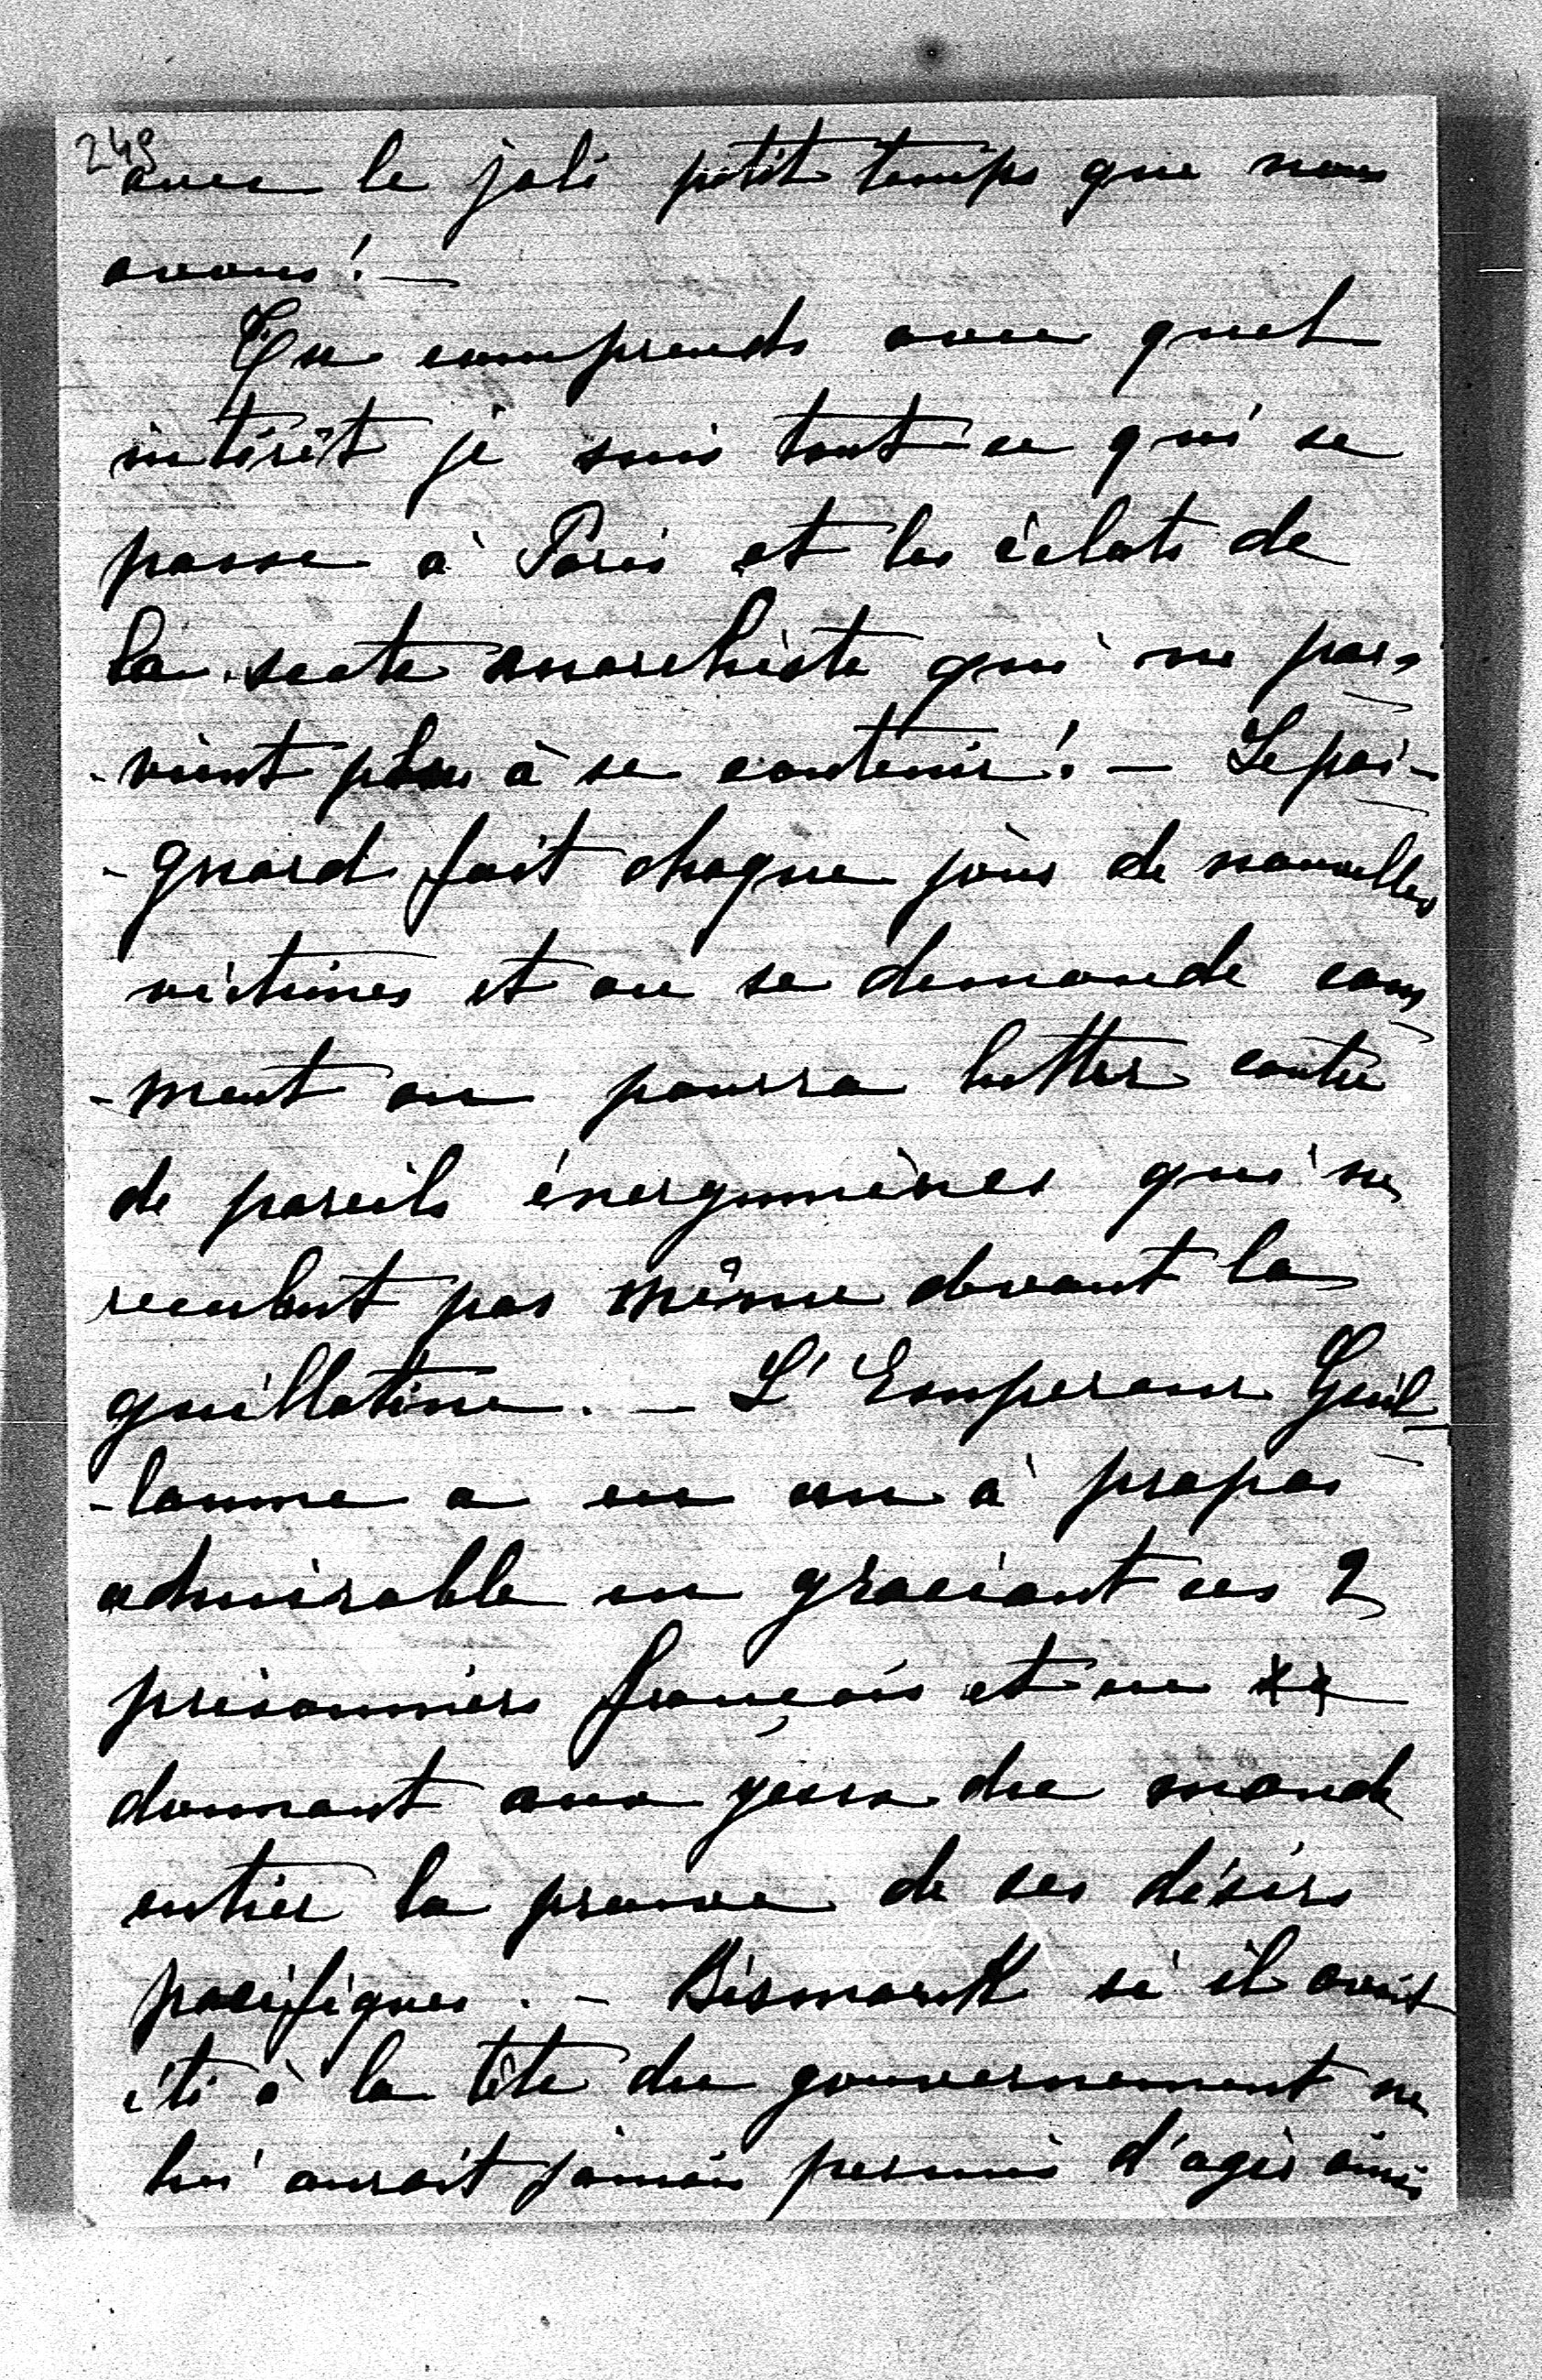 249
avec le joli petit temps que nous
avons! —
Tu comprends avec quel
intérêt je suis tout ce qui se
passe à Paris et les éclats de
la secte anarchiste qui ne par-
-vient plus à se contenir! — Le poi-
-gnard fait chaque jour de nouvelles
victimes et on se demande com-
-ment on pourra lutter contre
de pareils énergumènes qui ne
reculent pas même devant la
guillotine. — L'Empereur Guil-
-laume a eu un à propos
admirable en graciant ces 2
prisonniers français et en
donnant aux yeux du monde
entier la preuve de ses désirs
pacifiques. — Bismarck si il avait
été à la tête du gouvernement ne
lui aurait jamais permis d'agir ainsi